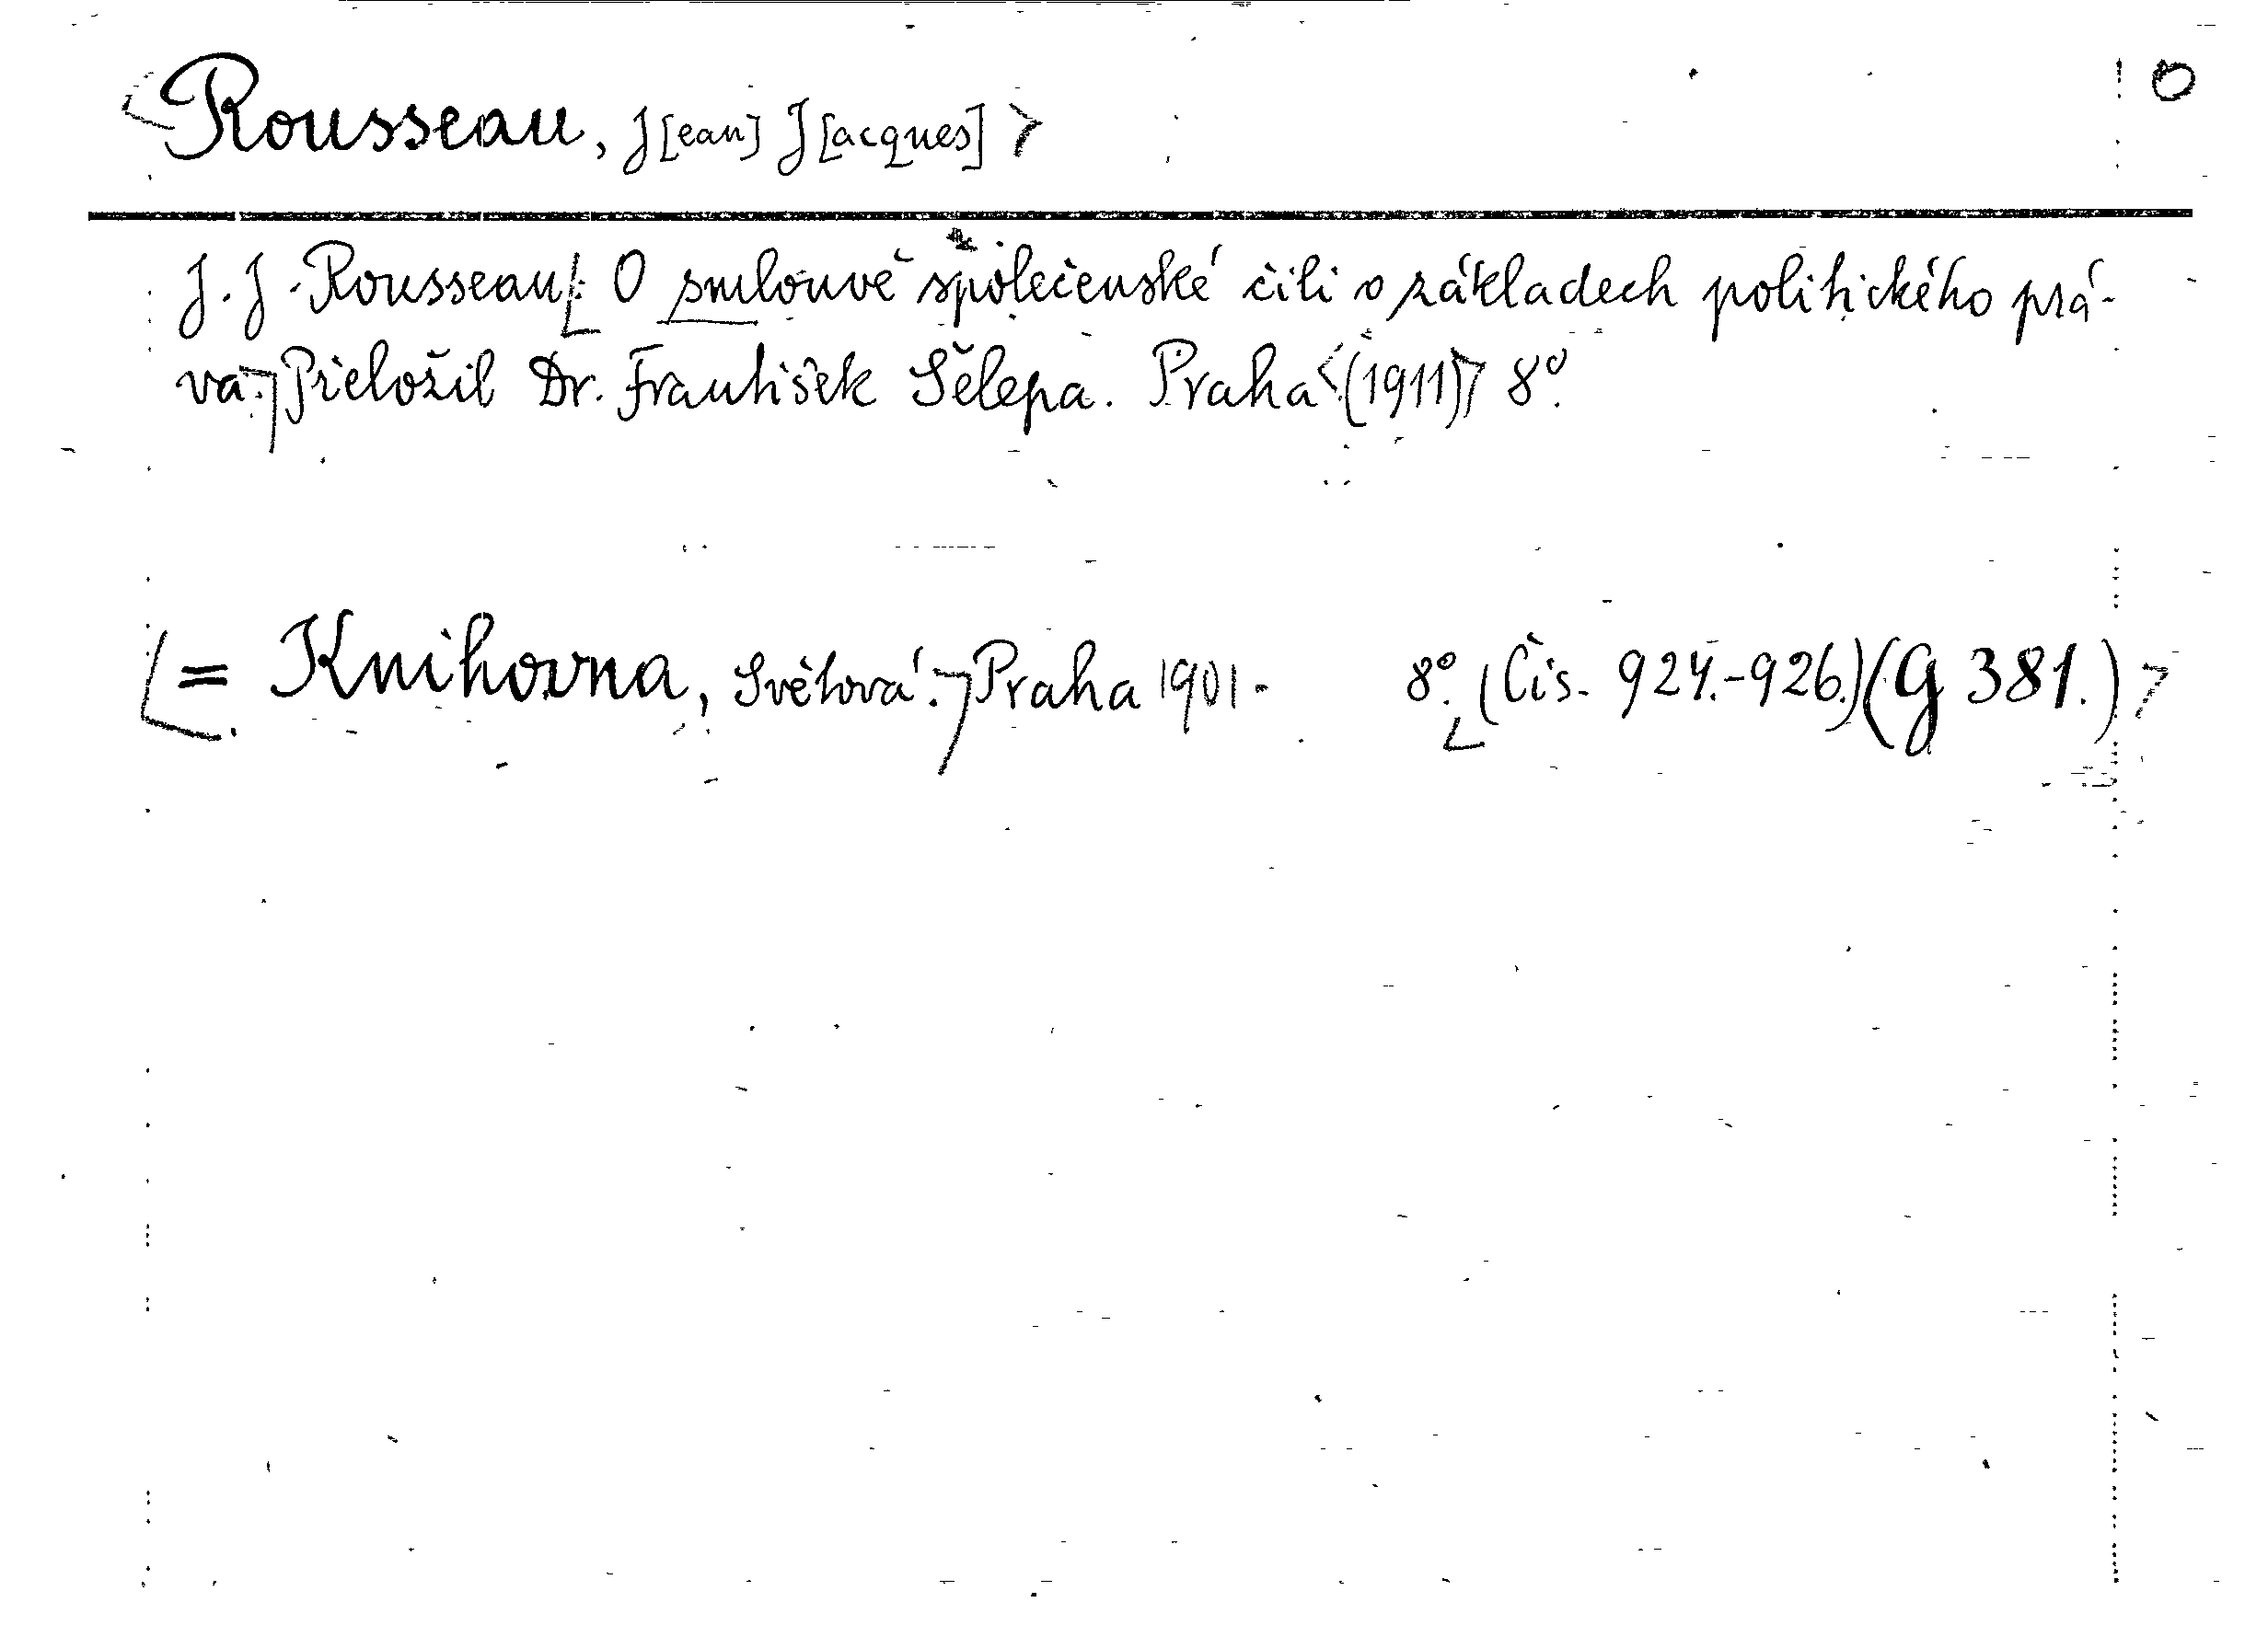 Rousseau, J[ean] J[acques] O
J. J. Rousseau: O smlouvě společenské čili o základech politického prá-
va. Přeložil Dr. František Šelepa. Praha (1911) 8°.
= Knihovna, Světová. Praha 1901- 8°. (Čís. 924.-926.) (G 381.)